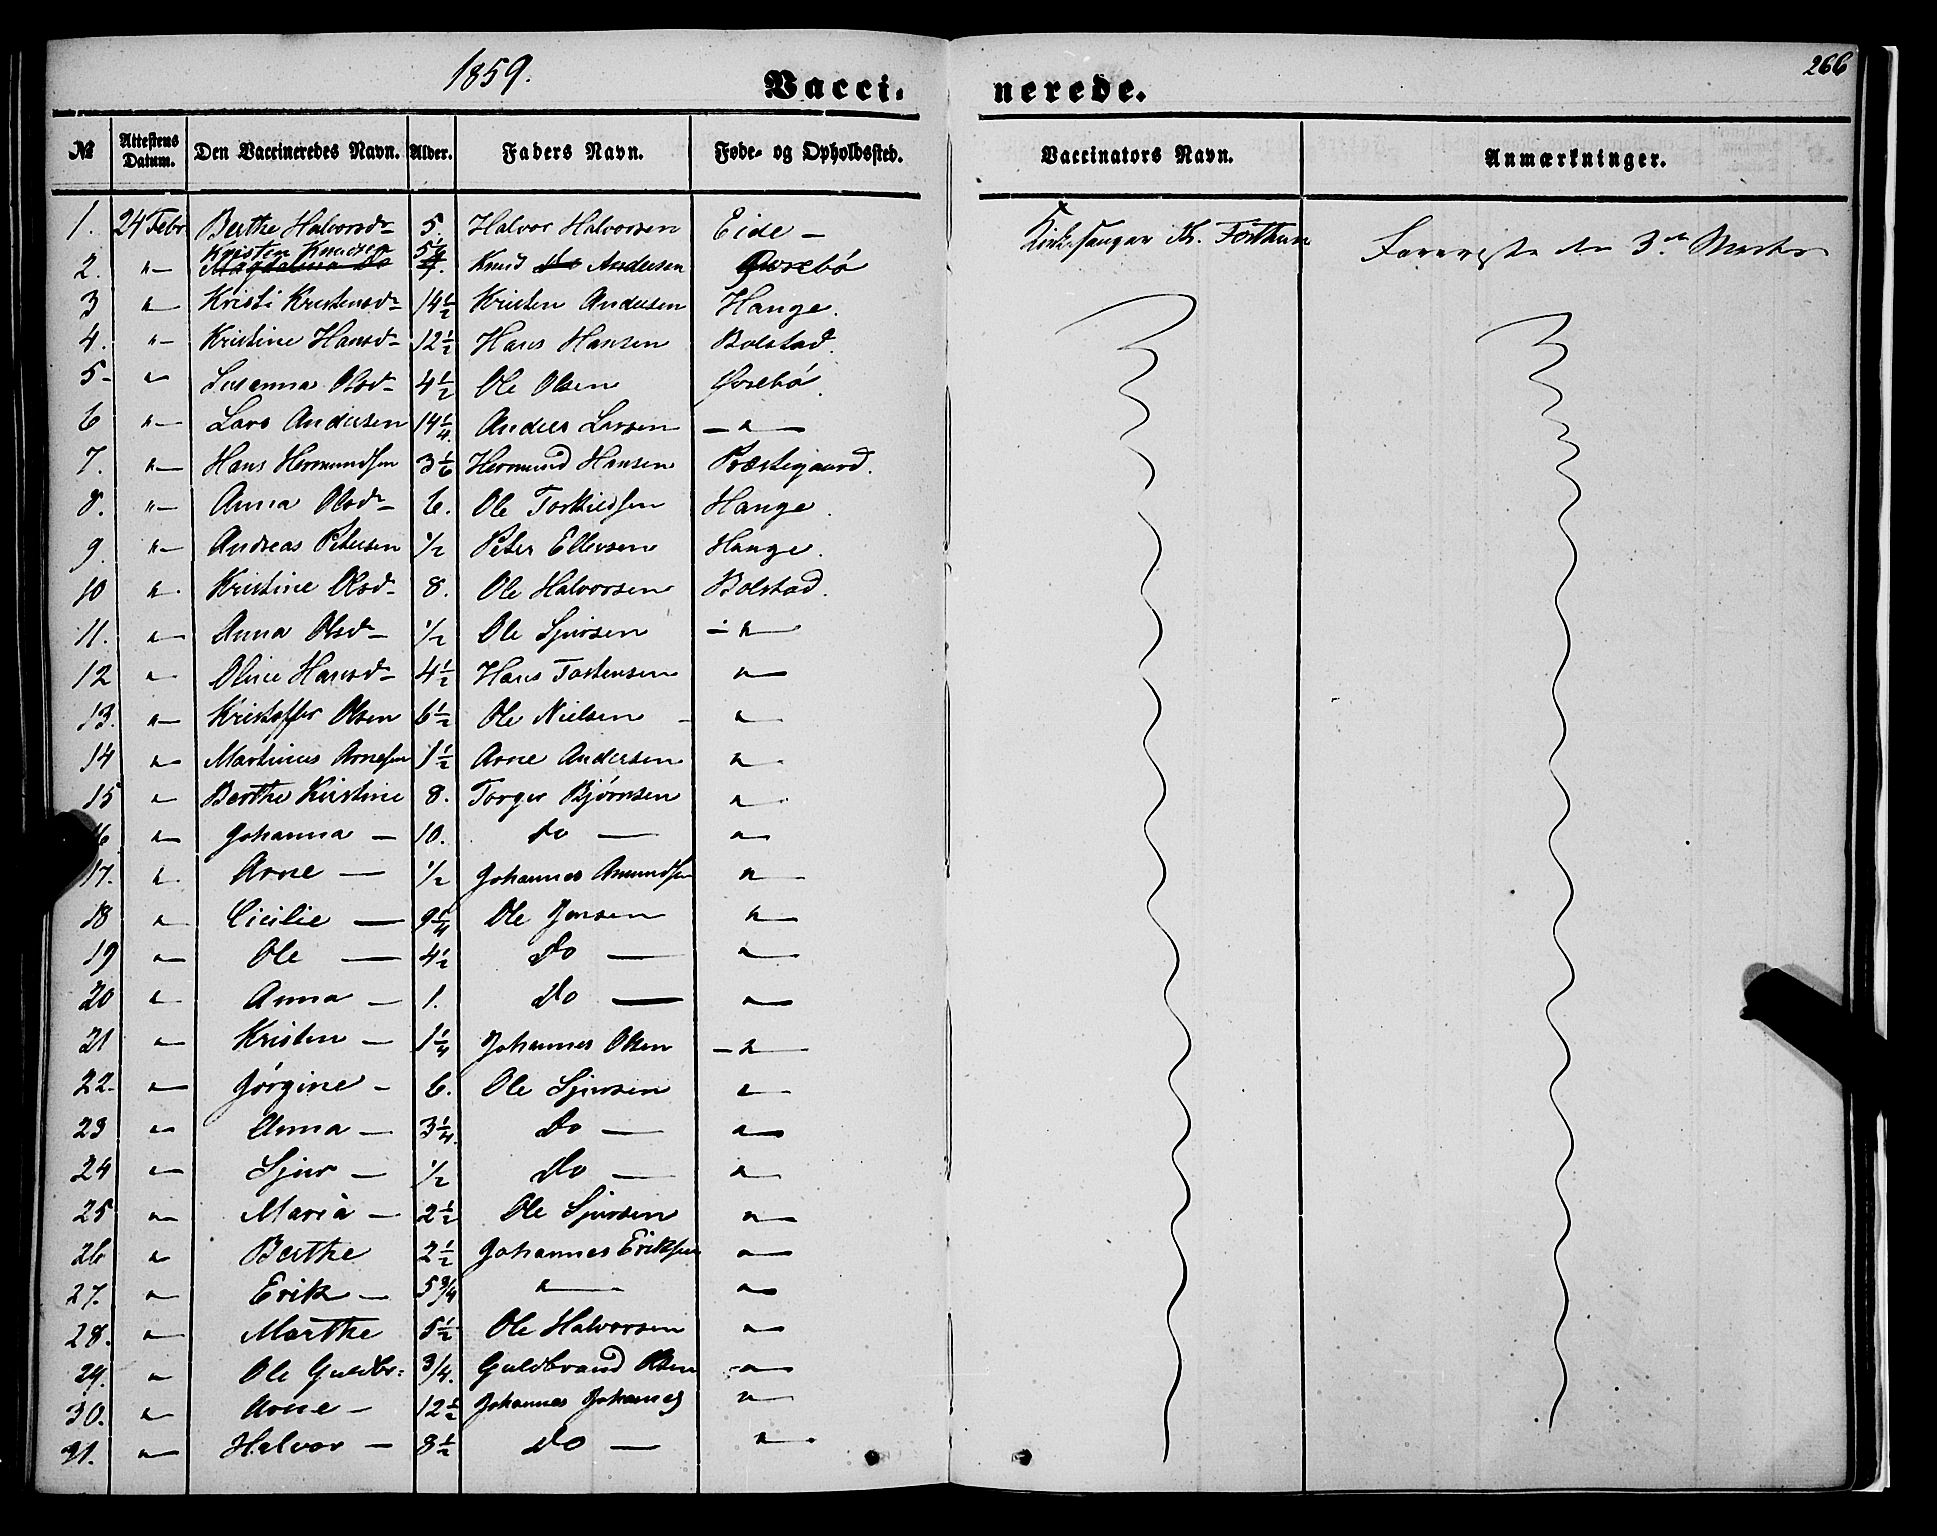 1859.
266
Vacci- nerede.
№ Attestens Datum. Den Vaccineredes Navn. Alder. Faders Navn. Føde- og Opholdssted. Vaccinators Navn. Anmærkninger.
1. 24 Febr Berthe Halvorsd- 5. Halvor Halvorsen Eide - Kirkesanger Forthun
Kristen Knudsen
2. "- Magdalena do Knud do Andersen Øvrebö
3 "- Kristi Kristensd- 14½ Kristen Andersen Hauge.
4. "- Kristine Hansd- 12½ Hans Hansen Bolstad.
5- "- Susanna Olsd- 4½ Ole Olsen Øvrebö.
6 "- Lars Andersen 14¼. Anders Larsen -"-
7. "- Hans Hermundsen 3⅙ Hermund Hansen Præstegaard.
8. "- Anna Olsd- 6. Ole Torkildsen Hauge.
9. "- Andreas Petersen ½ Peter Ellevsen Hauge.
10 ". Kristine Olsd- 8. Ole Halvorsen Bolstad.
11. "- Anna Olsd- ½ Ole Sjursen -"-
12 "- Oline Hansd- 4½ Hans Torstensen "-
13. "- Kristoffer Olsen 6½ Ole Nielsen - "-
14 "- Martinus Arnesen 1½ Arne Andersen "-
15 "- Berthe Kirstine 8. Torger Björnsen "-
16 "- Johanna - 10. do - "-
17. ". Arne - ½ Johannes Amundsen "-
18 "- Cicilie - 9¼ Ole Jonsen "-
19 "- Ole - 4½ Do - "-
20 "- Anna - 1. Do - "-
21 "- Kristen - 1¼ Johannes Olsen -"-
22. "- Jörgine - 6. Ole Sjursen "-
23 "- Anna - 3¼. Do - "-
24 "- Sjur - ½ Do - "-
25 "- Maria - 2½ Ole Sjursen "-
26 "- Berthe 2½ Johannes Eriksen "-
27. "- Erik - 5¾ "- "-
28. "- Marthe 5½ Ole Halvorsen "-
29. "- Ole Guldbr: 3/4. Guldbrand Olsen -"-
30. "- Arne - 12½ Johannes Johannes "-
31. "- Halvor - 8½ Do - "-